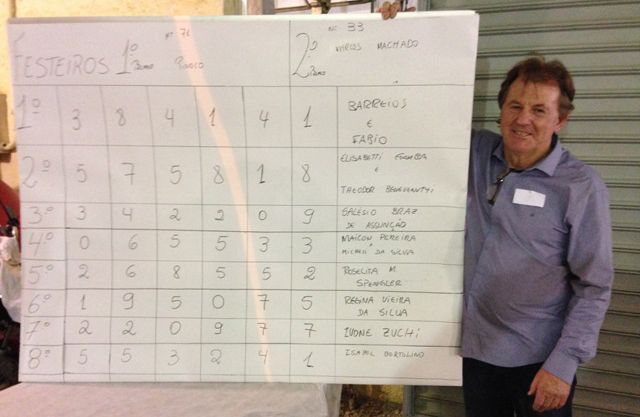 FESTEIROS 1º Nº 76
2º Nº 33
MACHADO
1º 3 8 4 1 4 1 BARREIOS
E
FABIO
2º 5 7 5 8 1 8 ELISABETTI
E
THEODOR
3º 3 4 2 2 0 9 GALESIO BRAZ
DE ASSUNÇÃO
4º 0 6 5 5 3 3 MAICON PEREIRA
MICHELI DA SILVA
5º 2 6 8 5 5 2 ROSELITA M
SPENGLER
6º 1 9 5 0 7 5 REGINA VIEIRA
DA SILVA
7º 2 2 0 9 7 7 IVONE ZUCHI
8º 5 5 3 2 4 1 ISABEL BORTOLINO